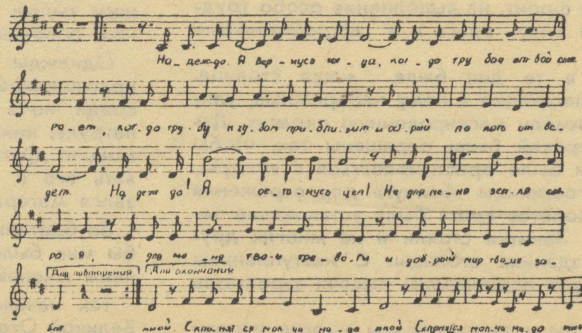 На-деж-да. Я вер-нусь ког-да, ког-да тру бач от-бой сыг
ра-ет, ког-да тру-бу к гу-бам при-бли-зит и ост-рый ло-коть от ве-
дет. На деж да! Я ос-та-нусь цел! Не для ме-ня зем-ля сы-
ра-я, а для ме-ня тво-и тре-во-ги и доб-рый мир тво-их за-
Для повторения Для окончания
бот мной Скло-нят ся мол ча на-до мной Склонятся мол-ча на-до мной